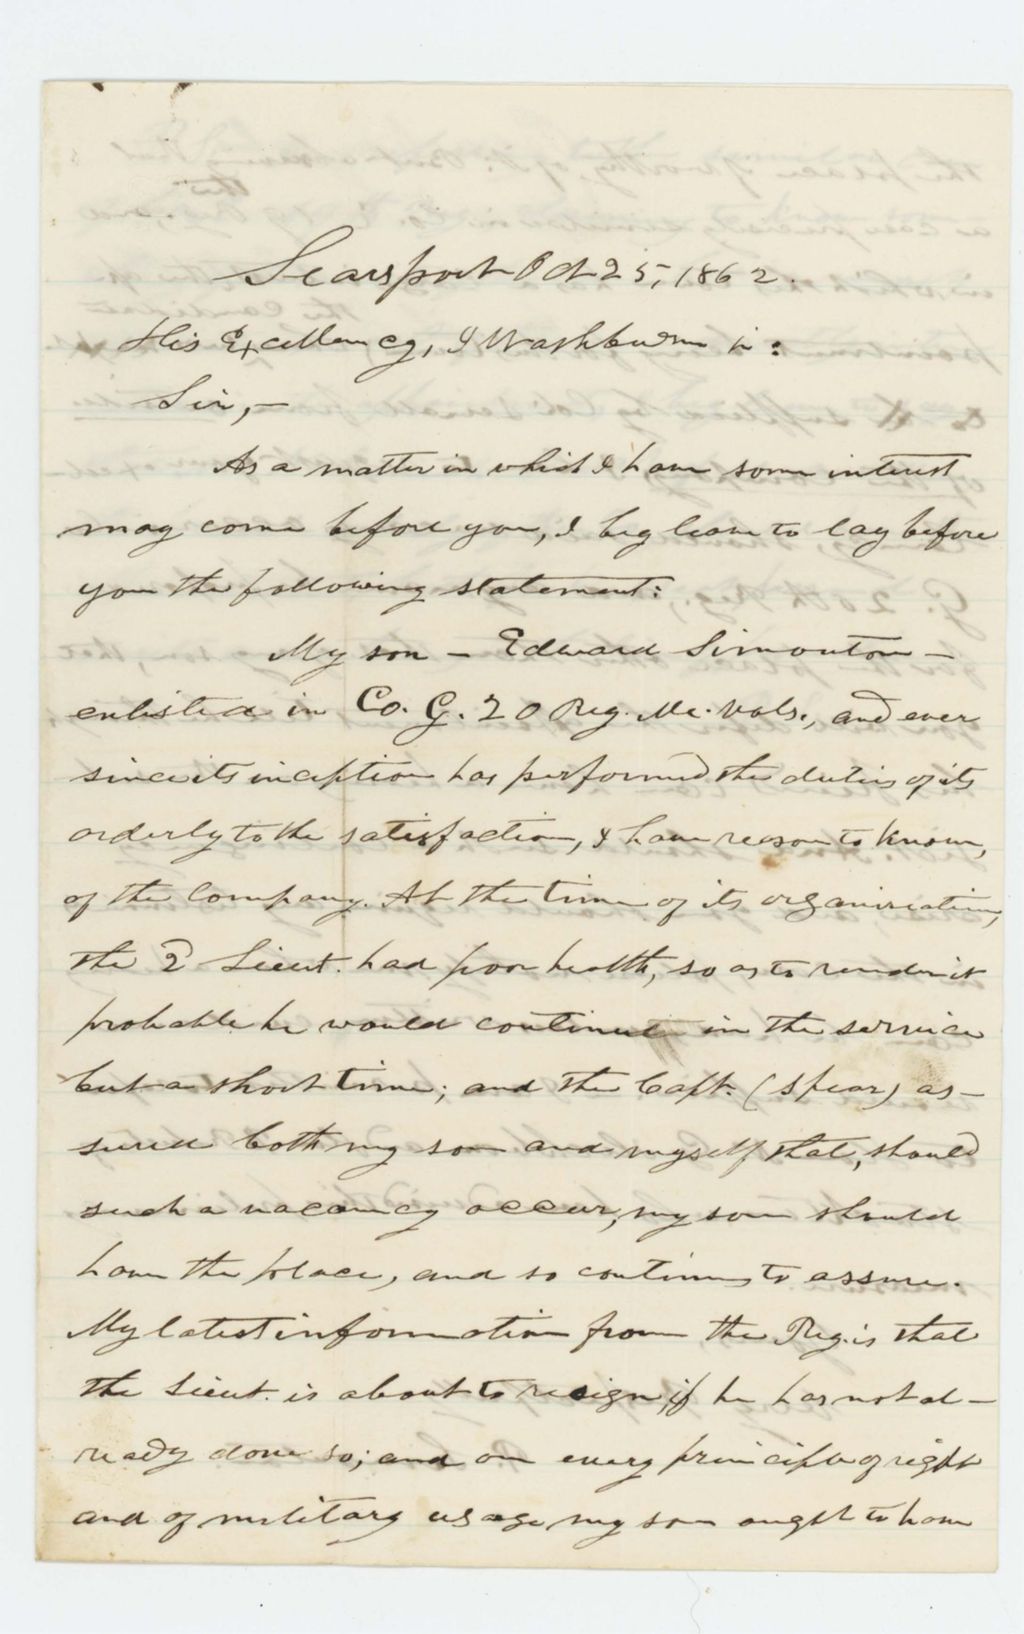 Searsport Oct 25, 1862.
His Excellency, I Washburn jr:
Sir,—
As a matter in which I have some interest
may come before you, I beg leave to lay before
you the following statement:
My son — Edward Simonton —
enlisted in Co. G. 20 Reg. Me. Vols., and ever
since its inception has performed the duties of its
orderly to the satisfaction, I have reason to know,
of the Company. At the time of its organization,
the 2d Lieut. had poor health, so as to render it
probable he would continue in the service
but a short time; and the Capt. (Spear) as-
sured both my son and myself that, should
such a vacancy occur, my son should
have the place, and so continues to assure.
My latest information from the Reg. is that
the Lieut. is about to resign, if he has not al-
ready done so; and on every principle of right
and of military usage my son ought to have